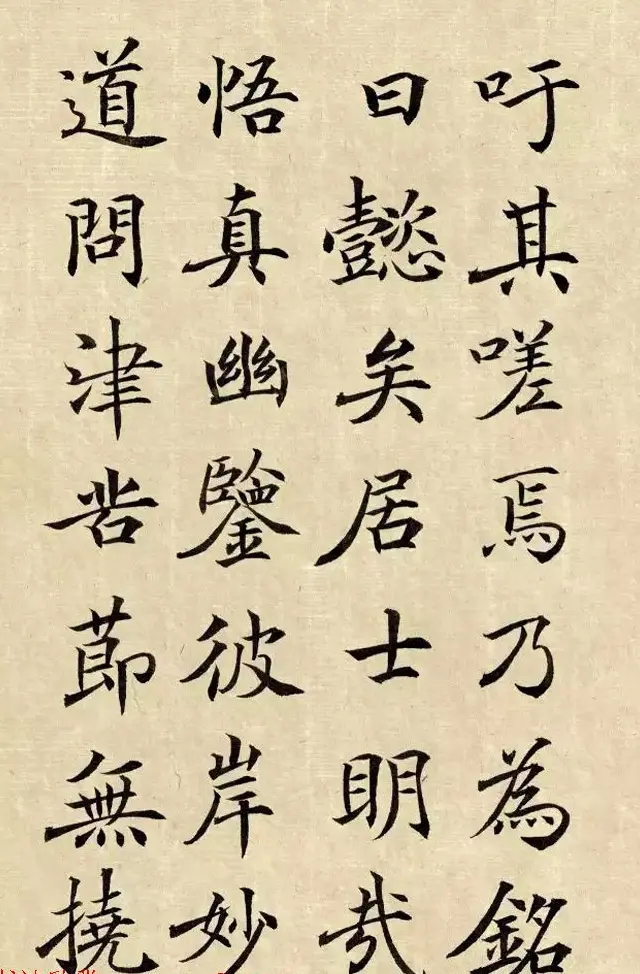 吁其嗟焉乃為銘
曰懿矣居士明哉
悟真幽鑒彼岸妙
道問津苦莭無撓